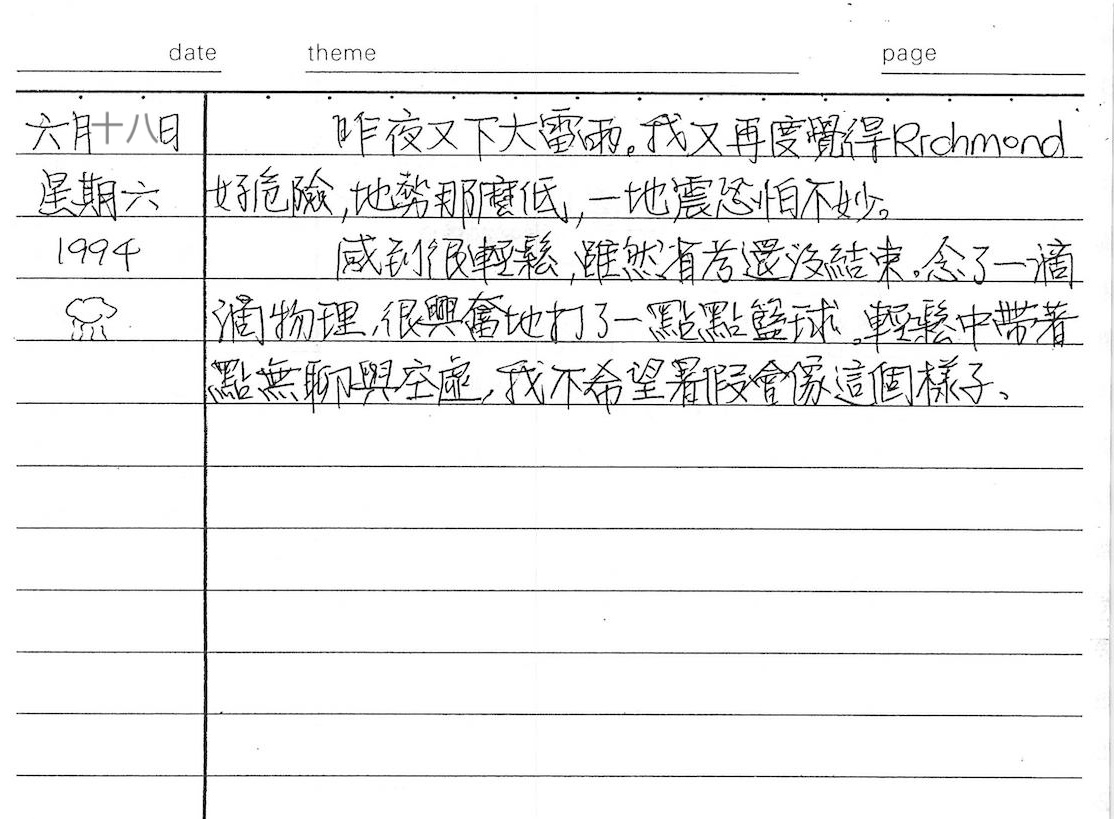 date theme page
六月十八日 昨夜又下大雷雨。我又再度覺得Richmond
星期六 好危險,地勢那麼低,一地震恐怕不妙。
1994 感到很輕鬆,雖然省考還沒結束。念了一滴
滴物理,很興奮地打了一點點籃球。輕鬆中帶著
點無聊與空虛,我不希望暑假會像這個樣子、